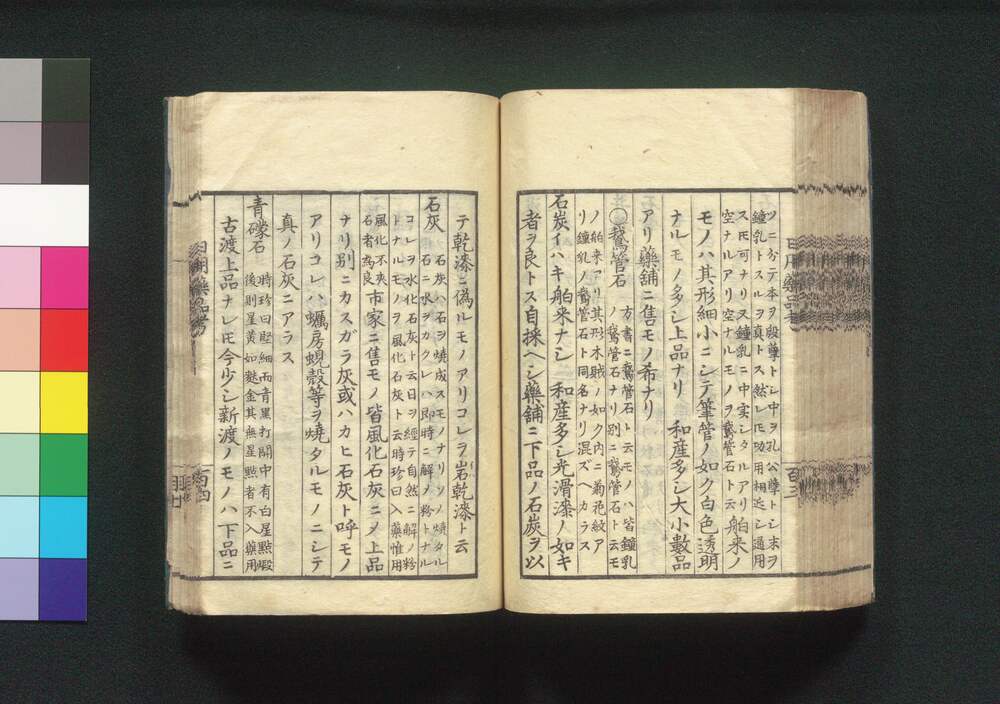 ツニ分テ本ヲ殷孽トシ中ヲ孔公孽トシ末ヲ
鐘乳トスルヲ真トス然レ𪜈功用相近シ通用
ス𪜈可ナリス鐘乳ニ中実シタルアリ
空ナルアリ空ナルモノヲ鵞管石ト云 舶来ノ
モノハ其形細小ニシテ筆管ノ如ク白色透明
ナルモノ多シ上品ナリ 和産多シ大小數品
アリ藥舗ニ售モノ希ナリ
〇鵞管石 方書ニ鵞管石ト云モノハ皆鐘乳
ノ鵞管石ナリ別ニ鵞管石ト云モ
ノ舶来アリ其形木賊ノ如ク内ニ菊花紋ア
リ鐘乳ノ鵞管石ト同名ナリ混ズヘカラス
石炭イハキ 舶来ナシ 和産多シ光滑漆ノ如キ
者ヲ良トス自採ヘシ藥舗ニ下品ノ石炭ヲ以
日用藥品考
百三
テ乾漆ニ偽ルモノアリコレヲ岩乾漆ト云
石灰 石灰ハ石ヲ燒成スモノナリソノ燒タル
石ニ水ヲカクレハ即時ニ解ノ粉トナル
コレヲ水化石灰ト云日ヲ經テ自然ニ解ノ粉
トナルモノヲ風化石灰ト云時珍曰入藥惟用
風化不夾
石者為良 市家ニ售モノ皆風化石灰ニメ上品
ナリ別ニカスガラ灰或ハカヒ石灰ト呼モノ
アリコレハ蠣房蜆殻等ヲ燒タルモノニシテ
真ノ石灰ニアラス
青礞石 時珍曰堅細而青黒打開中有白星點煅
後則星黄如麩金其無星點者不入藥用
古渡上品ナレ𪜈今少シ新渡ノモノハ下品ニ
日用藥品考
百四